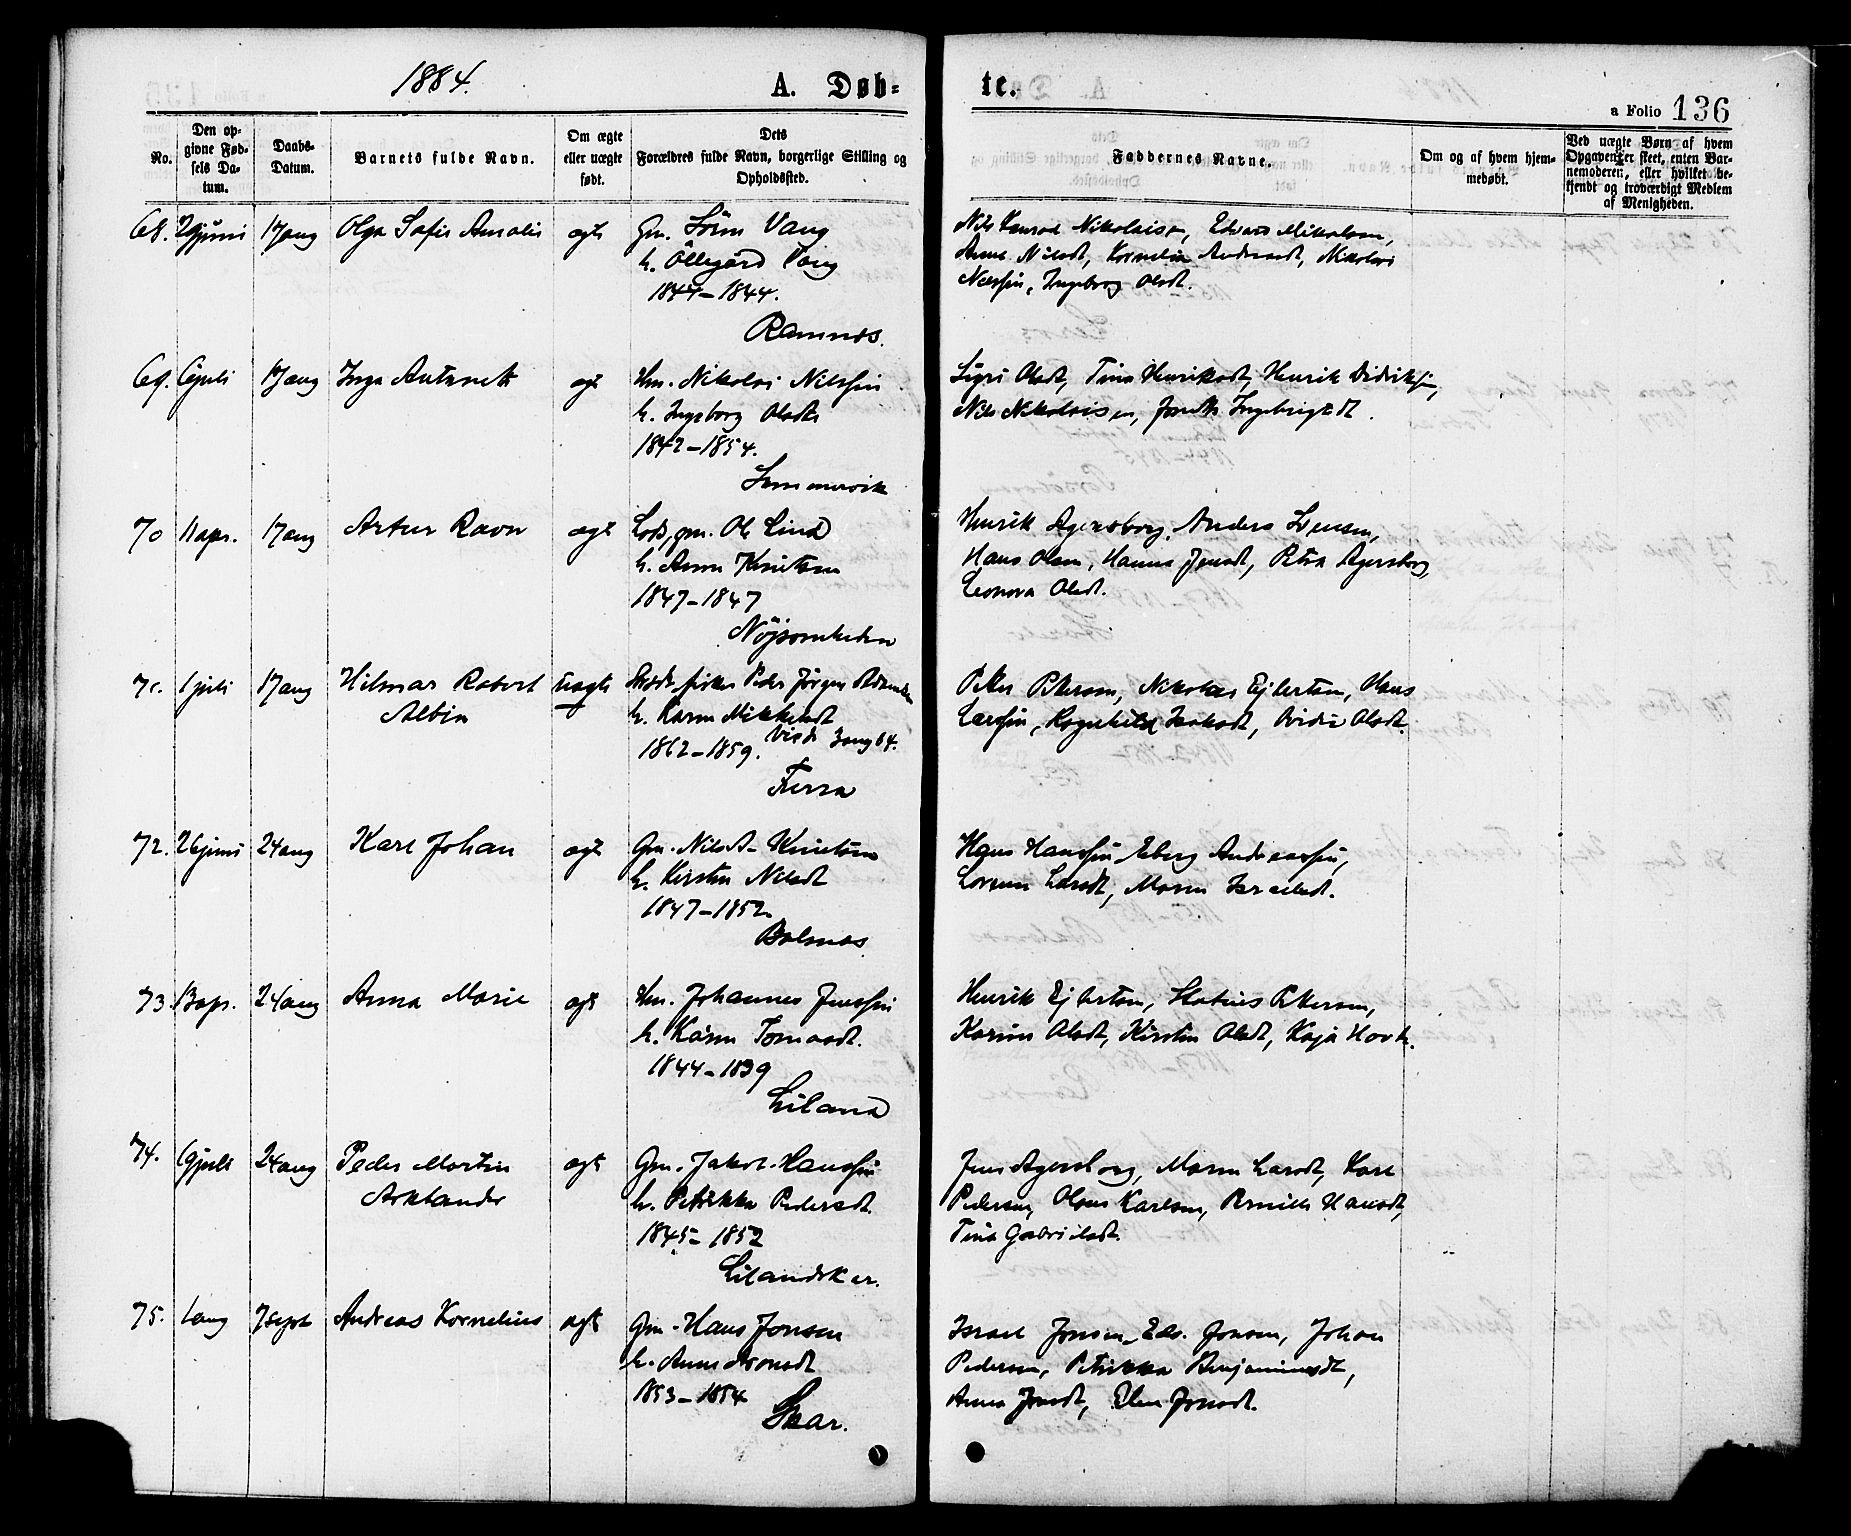 1884.
A. Døb-
te.
a Folio 136
No.
Den op-
givne Fød-
sels Da-
tum.
Daabs-
Datum.
Barnets fulde Navn.
Om ægte
eller uægte
født.
Dets
Forældres fulde Navn, borgerlige Stilling og
Opholdssted.
Faddernes Navne.
Om og af hvem hjem-
medøbt.
Ved uægte Børn af hvem
Opgaven er skeet, enten Bar-
nemoderen, eller hvilket be-
kjendt og troværdigt Medlem
af Menigheden.
68. 29juni 17aug Olga Sofie Amalie ægte Gm. Sörin Vang
h. Ollegård Vang
1844-1844.
Ramnes.
Nils Konrad Nikolaisen, Edvard Mikalsen,
Anna Nilsdt, Kornelia Andreasdt, Nikolai
Nilssen, Ingeborg Olsdt.
69. 6juli 17aug Inga Antonette ægte Hm. Nikolai Nilssen
h. Ingeborg Olsdt
1842-1854.
Sommervik
Sigri Olsdt, Tina Henriksdt, Henrik Didriksen,
Nils Nikolaisen, Ingebrigtsdt.
70 11apr. 17aug Artur Ravn ægte Lods, gm. Ole Lind
h. Anna Knutsen
1847-1847
Nöjsomheden
Henrik Agersborg, Anders Svensen,
Hans Olsen, Hanna Jensdt, Petra Agersborg,
Leonora Olsdt.
71. 1juli 17aug Hilmar Robert uægte fisker Peder Jörgen
Albin h. Karen Mikkelsdt
1862-1859. Viede 3aug 84.
Furra
Peter Petersen, Nikolai Ejlertsen, Hans
Larssen, Ragnhild Isaksdt, Olsdt.
72. 26juni 24aug Karl Johan ægte Gm. Nils A. Knutsen
h. Kirsten Nilsdt
1847-1852
Balnes
Hans Hanssen, Esberg Andreassen,
Lorense Larsdt, Maren Israelsdt.
73. 13apr. 24aug Anna Marie ægte Hm. Johannes Jenssen
h. Karen Tomasdt.
1844-1839
Liland
Henrik Ejlertsen, Petersen,
Karine Olsdt, Kirsten Olsdt, Kaja Hovde.
74. 19juli 24aug Peder Martin ægte Gm. Jakob Hanssen
h. Petrikke Pedersdt
1845-1852
Lilandsker.
Jens Agersborg, Maren Larsdt, Karl
Pedersen, Olaus Karlsen, Pernille Hansdt,
Tina Gabrielsdt.
75. 1aug 7sept Andreas Kornelius ægte Gm. Hans Jonsen
h. Anna Aronsdt
1853-1854
Skar.
Israel Jonsen, Edv. Jonsen, Johan
Pedersen, Petrikka Benjaminsdt,
Anna Jonsdt, Elen Jonsdt.